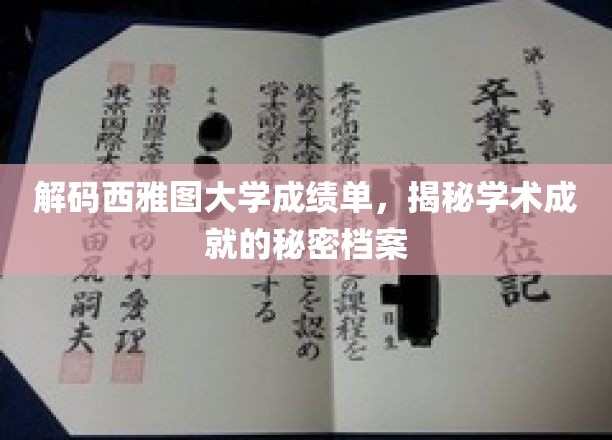 第 号
卒業証書 学位記
本学商学部 定の課程を
修めて本学 ことを認め
学士(商学)の学 する
平成
東京国際大学商 田村愛理
東京国際大学長田尻嗣夫
解码西雅图大学成绩单，揭秘学术成
就的秘密档案